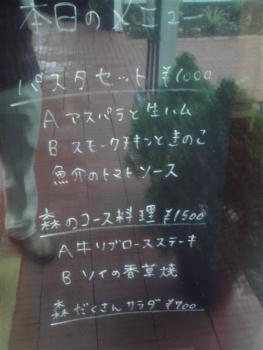 本日のメニュー
パスタセット ¥1000
A アスパラと生ハム
B スモークチキンときのこ
魚介のトマトソース
森のコース料理 ¥1500
A 牛リブロースステーキ
B ソイの香草焼
森だくさんサラダ ¥700